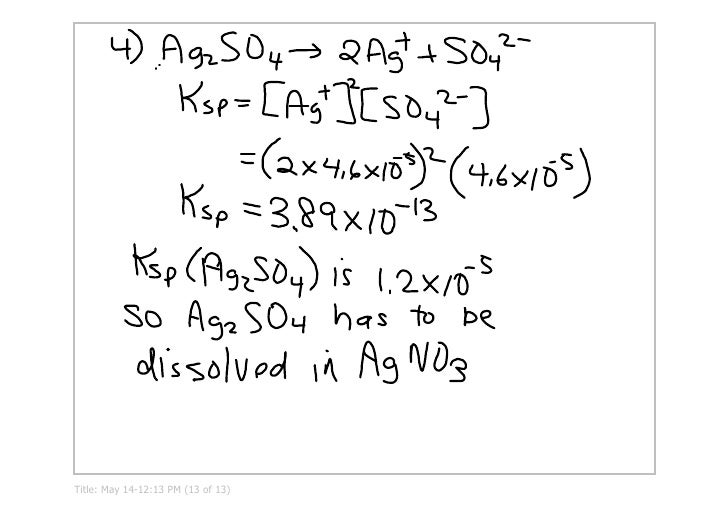 4) Ag₂SO₄ → 2Ag⁺ + SO₄²⁻
Ksp = [Ag⁺]²[SO₄²⁻]
= (2×4.6×10⁻⁵)² (4.6×10⁻⁵)
Ksp = 3.89×10⁻¹³
Ksp (Ag₂SO₄) is 1.2×10⁻⁵
so Ag₂SO₄ has to be
dissolved in AgNO₃
Title: May 14-12:13 PM (13 of 13)